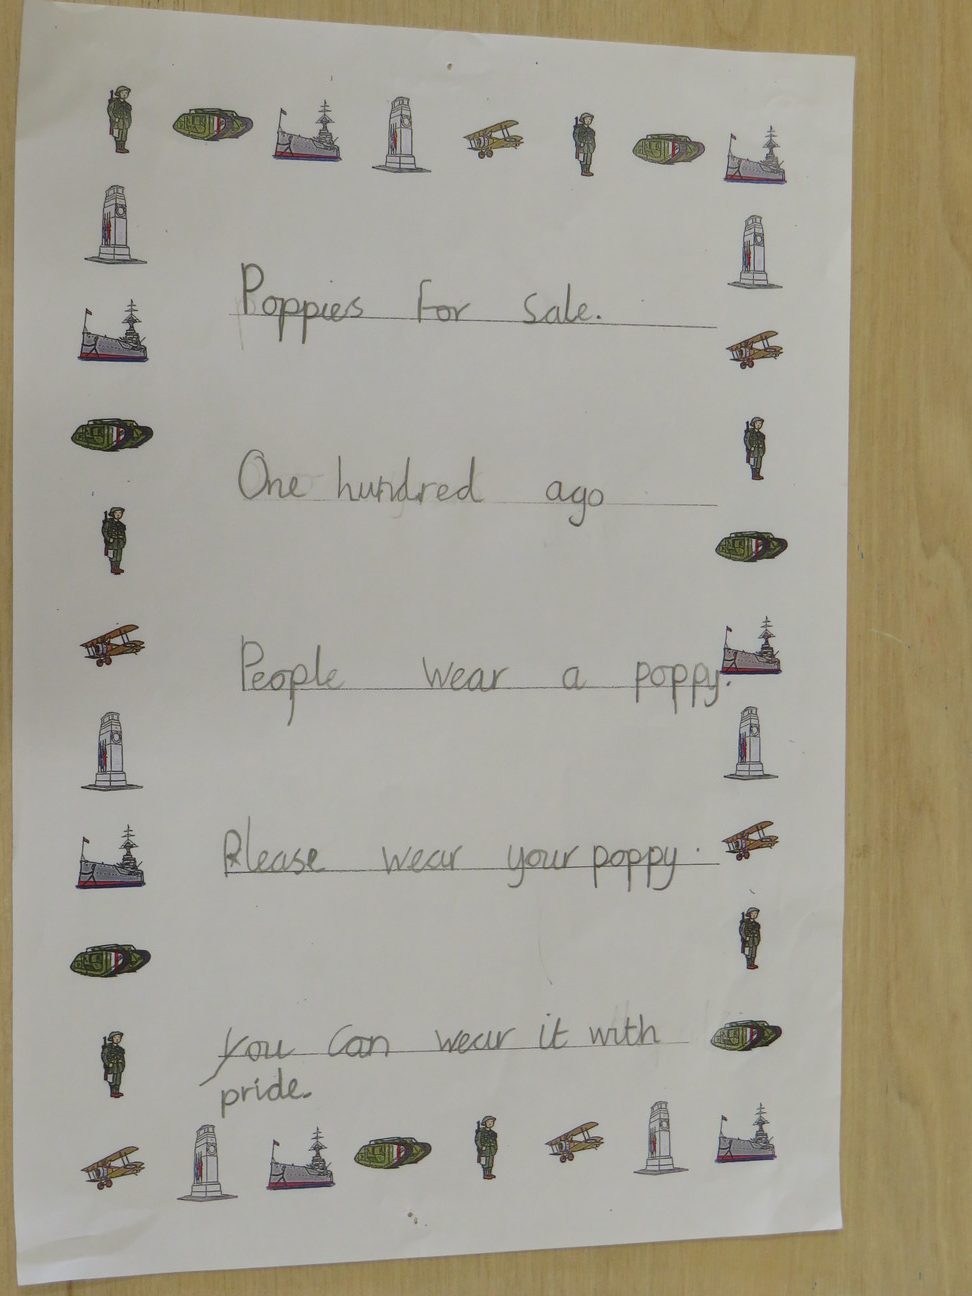 Poppies for sale.
One hundred ago
People wear a poppy.
Please wear your poppy.
you can wear it with
pride.